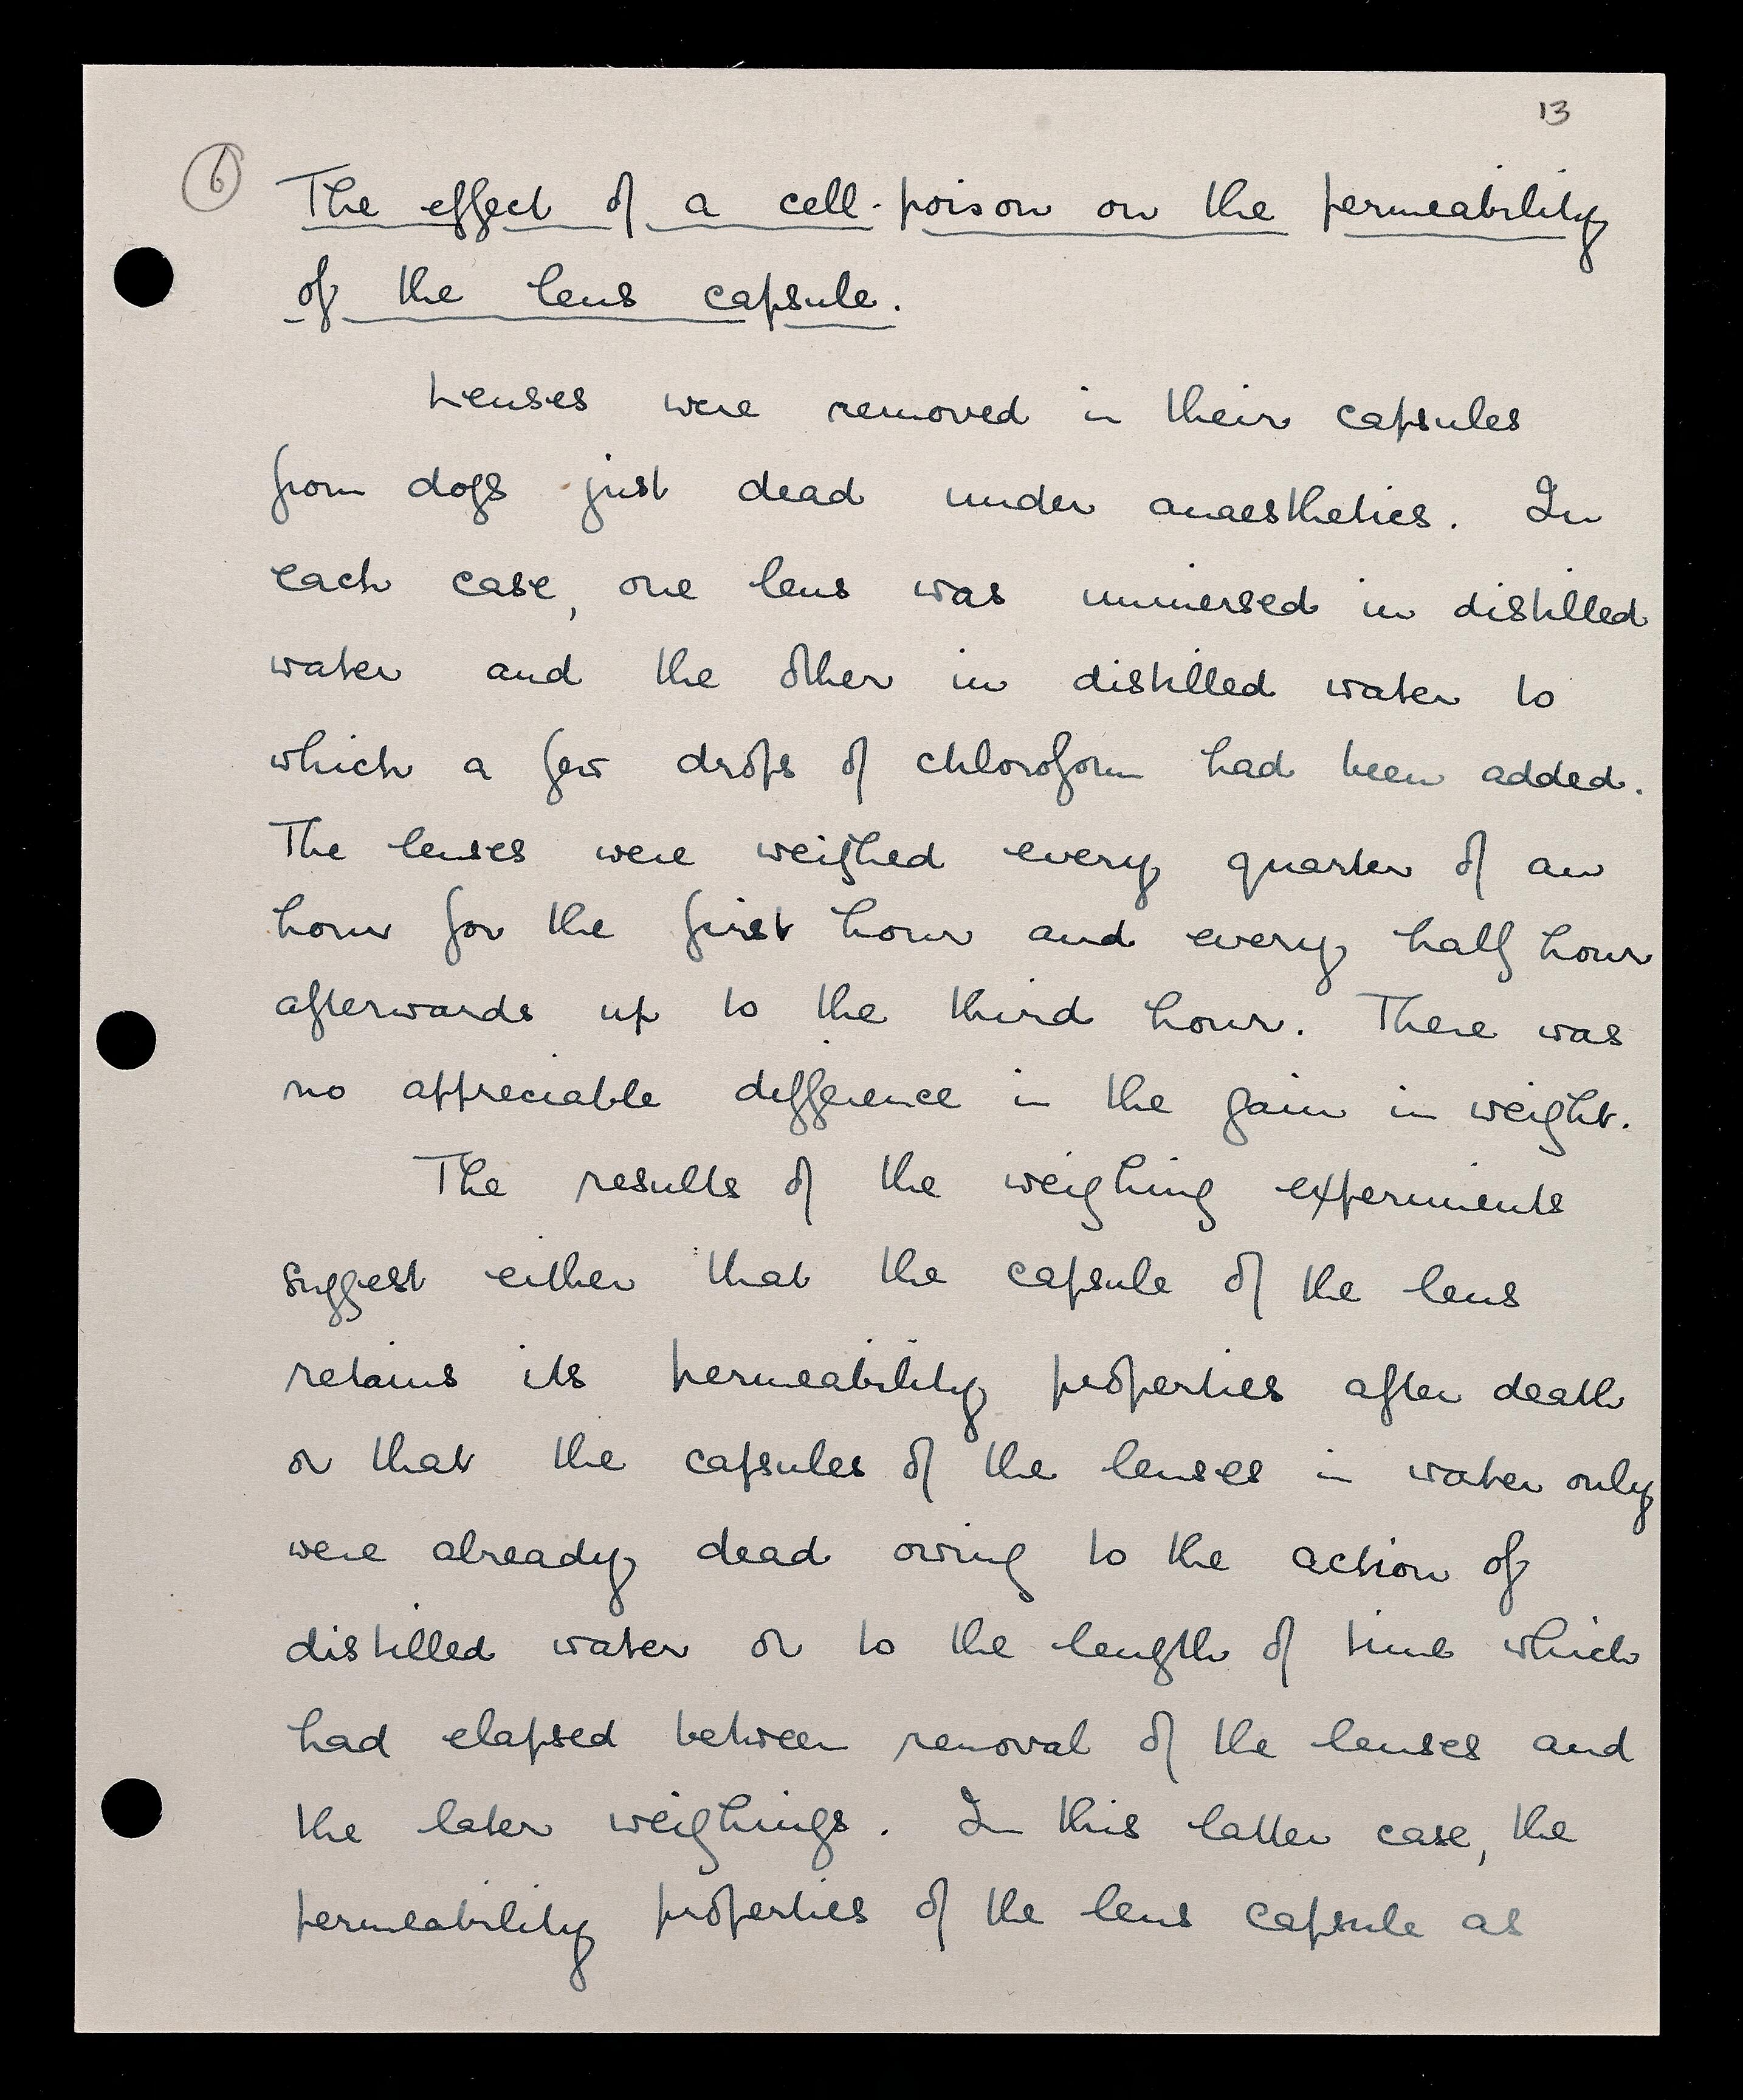 13
6
The effect of a cell-poison on the permeability
of the lens capsule.
Lenses were removed in their capsules
from dogs just dead under anaesthetics. In
each case, one lens was immersed in distilled
water and the other in distilled water to
which a few drops of chloroform had been added.
The lenses were weighed every quarter of an
hour for the first hour and every half hour
afterwards up to the third hour. There was
no appreciable difference in the gain in weight.
The results of the weighing experiments
suggest either that the capsule of the lens
retains its permeability properties after death
or that the capsules of the lenses in water only
were already dead owing to the action of
distilled water or to the length of time which
had elapsed between removal of the lenses and
the later weighings. In this latter case, the
permeability properties of the lens capsule as